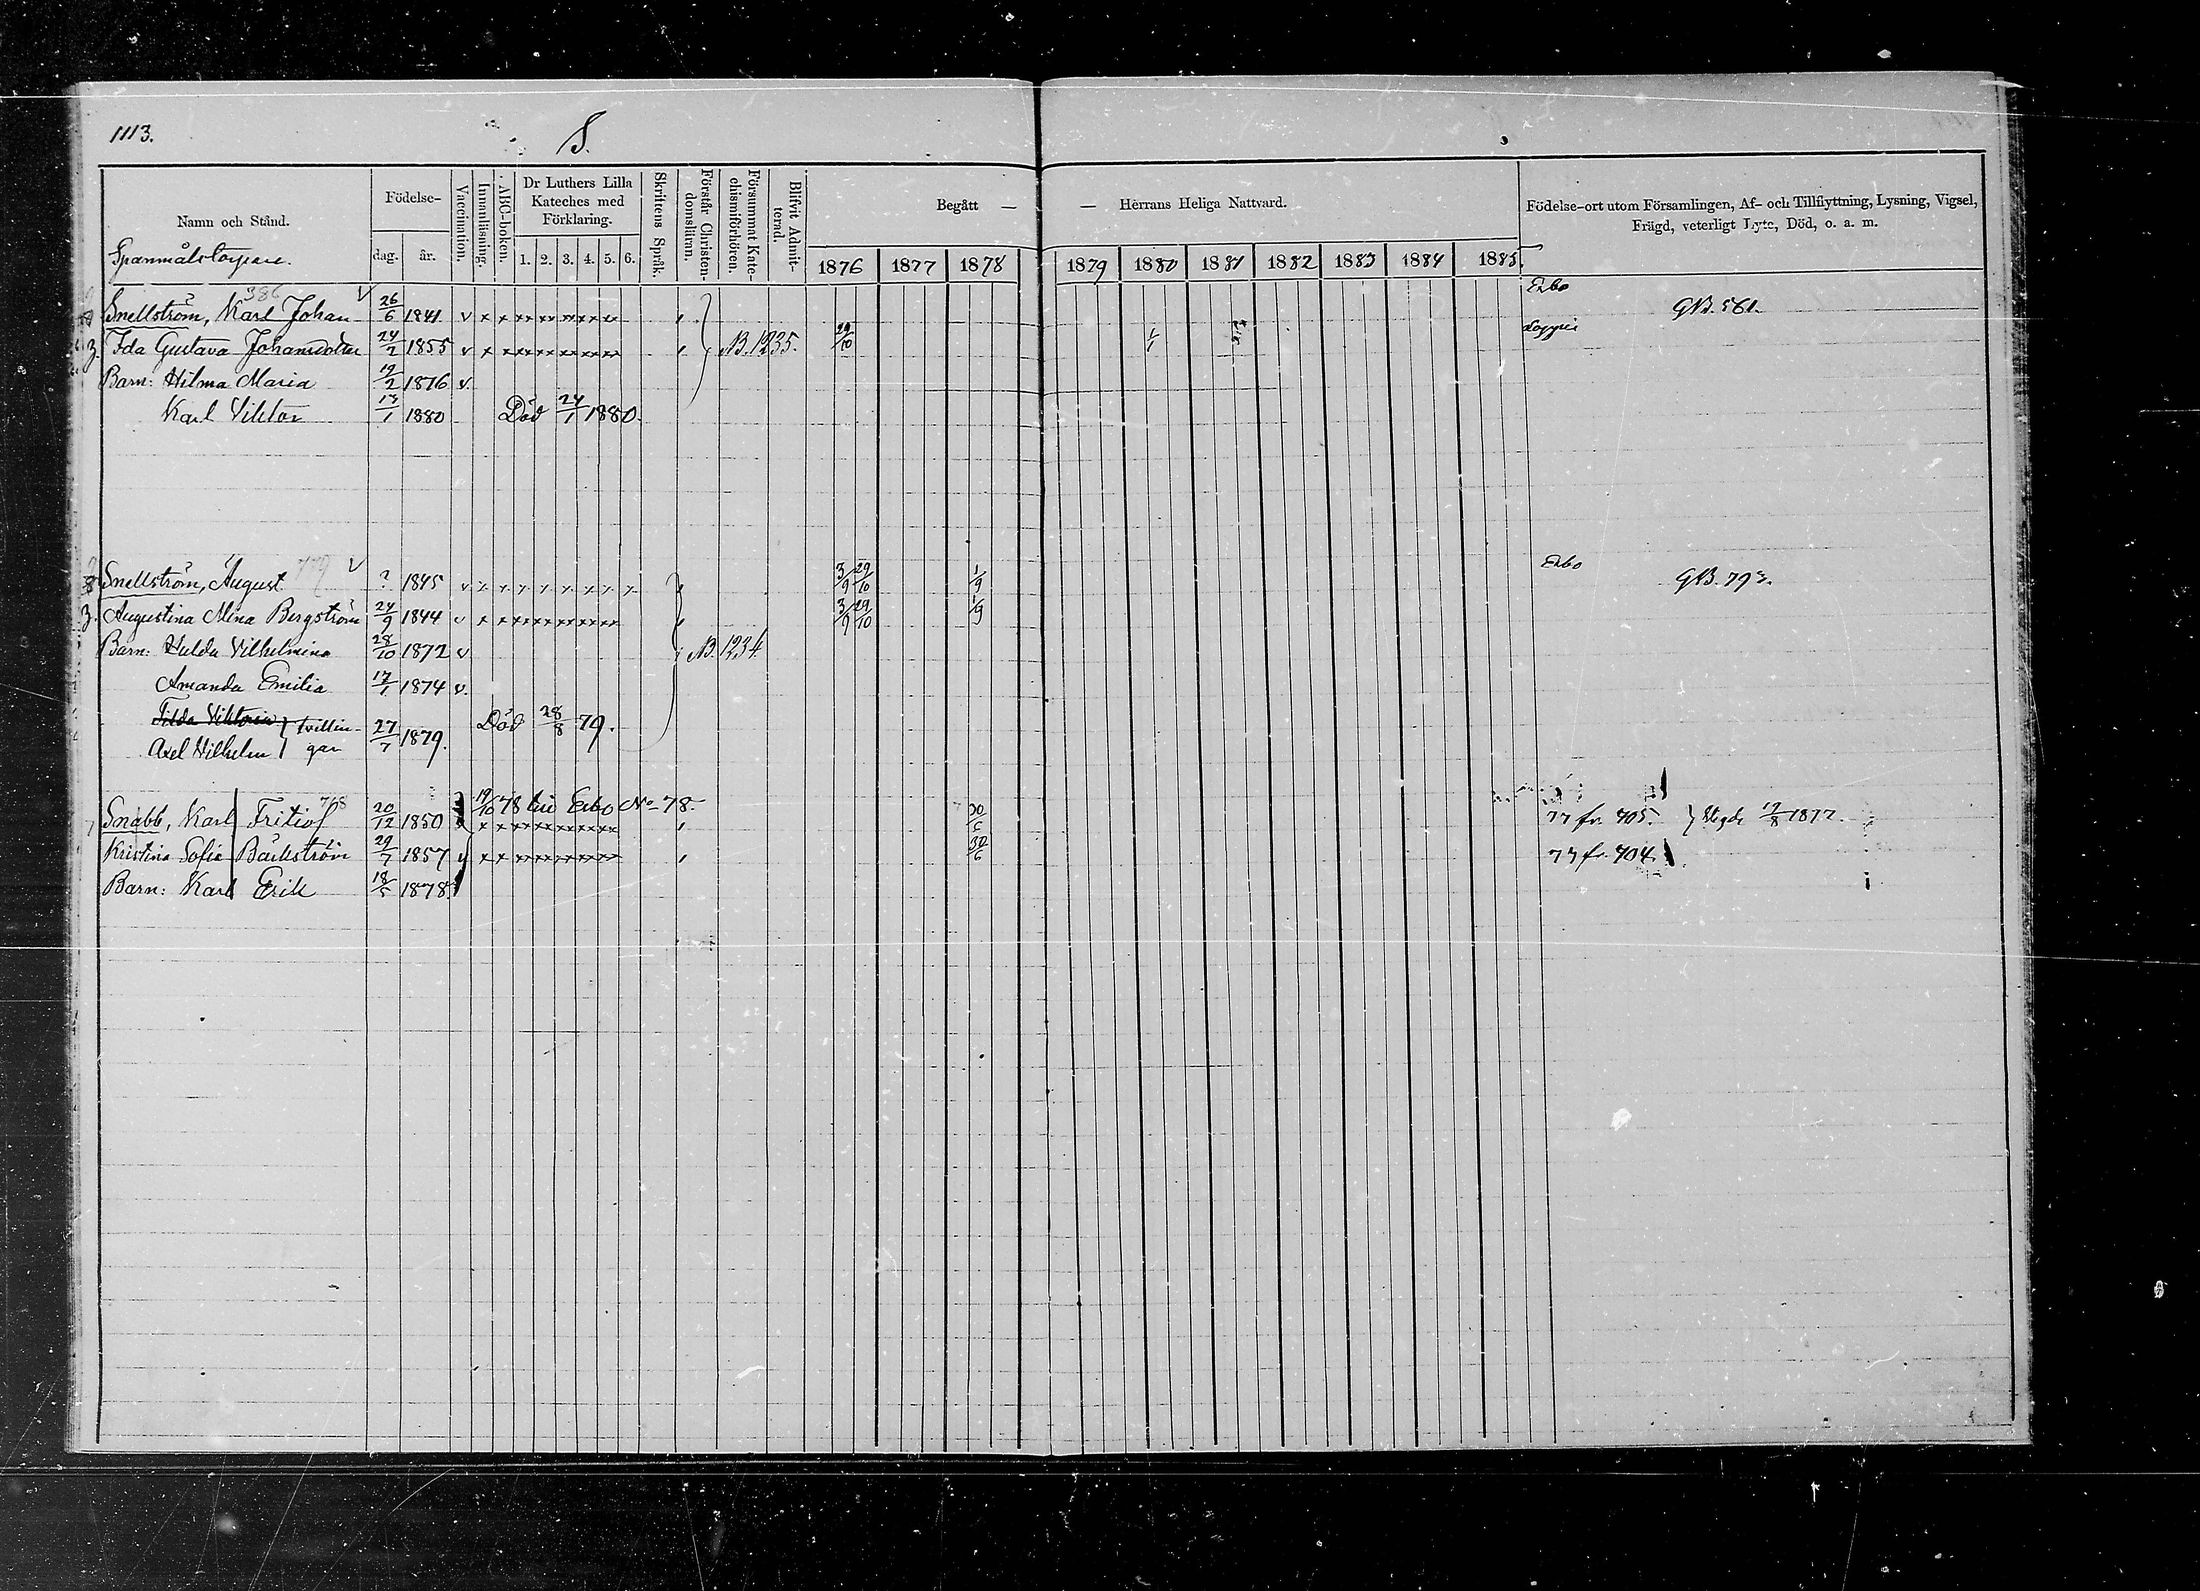 1113.
S.
Namn och Stånd.
Födelse-
dag.
år.
Vaccination.
Innanläsning.
ABC-boken.
Dr Luthers Lilla
Kateches med
Förklaring.
1. 2. 3. 4. 5. 6.
Skriftens Språk.
Förstår Christen-
domsläran.
Försummat Kate-
chismiförhören.
Blifvit Admit-
terad.
Begått — — Hérrans Heliga Nattvard.
1876 1877 1878 1879 1880 1881 1882 1883 1884 1885.
Födelse-ort utom Församlingen, Af- och Tillflyttning, Lysning, Vigsel,
Frägd, veterligt Lyte, Död, o. a. m.
Spanmålstorpare.
386
Snellström, Karl Johan 26/6 1841 v x x Erbo GB. 561.
3. Ida Gustava Johansdotter 24/2 1855 v x x NB. 1235. 29/10 1/1 Loppis
Barn: Hilma Maria 19/2 1876 v.
Karl Viktor 13/1 1880 Död 24/1 1880.
Snellström, August ? 1845 v x x x x x x x x 3/9 29/10 1/9 Erbo GB. 793.
3. Augustina Mina Bergström 24/9 1844 v x x 3/9 29/10 1/9
Barn: Hulda Vilhelmina 28/10 1872 v NB. 1234.
Amanda Emilia 17/1 1874 v.
Tilda Viktoria } tvillin-
Axel Vilhelm } gar 27/7 1879. Död 28/8 79.
768 19/10 78 till Erbo No 78.
Snabb, Karl Fritiof 20/12 1850 x x 30/6 77 fr. 705. } Vigde 12/8 1877.
Kristina Sofia Bäckström 29/7 1857 v x x 30/6 77 fr. 704.
Barn: Karl Erik 18/5 1878.